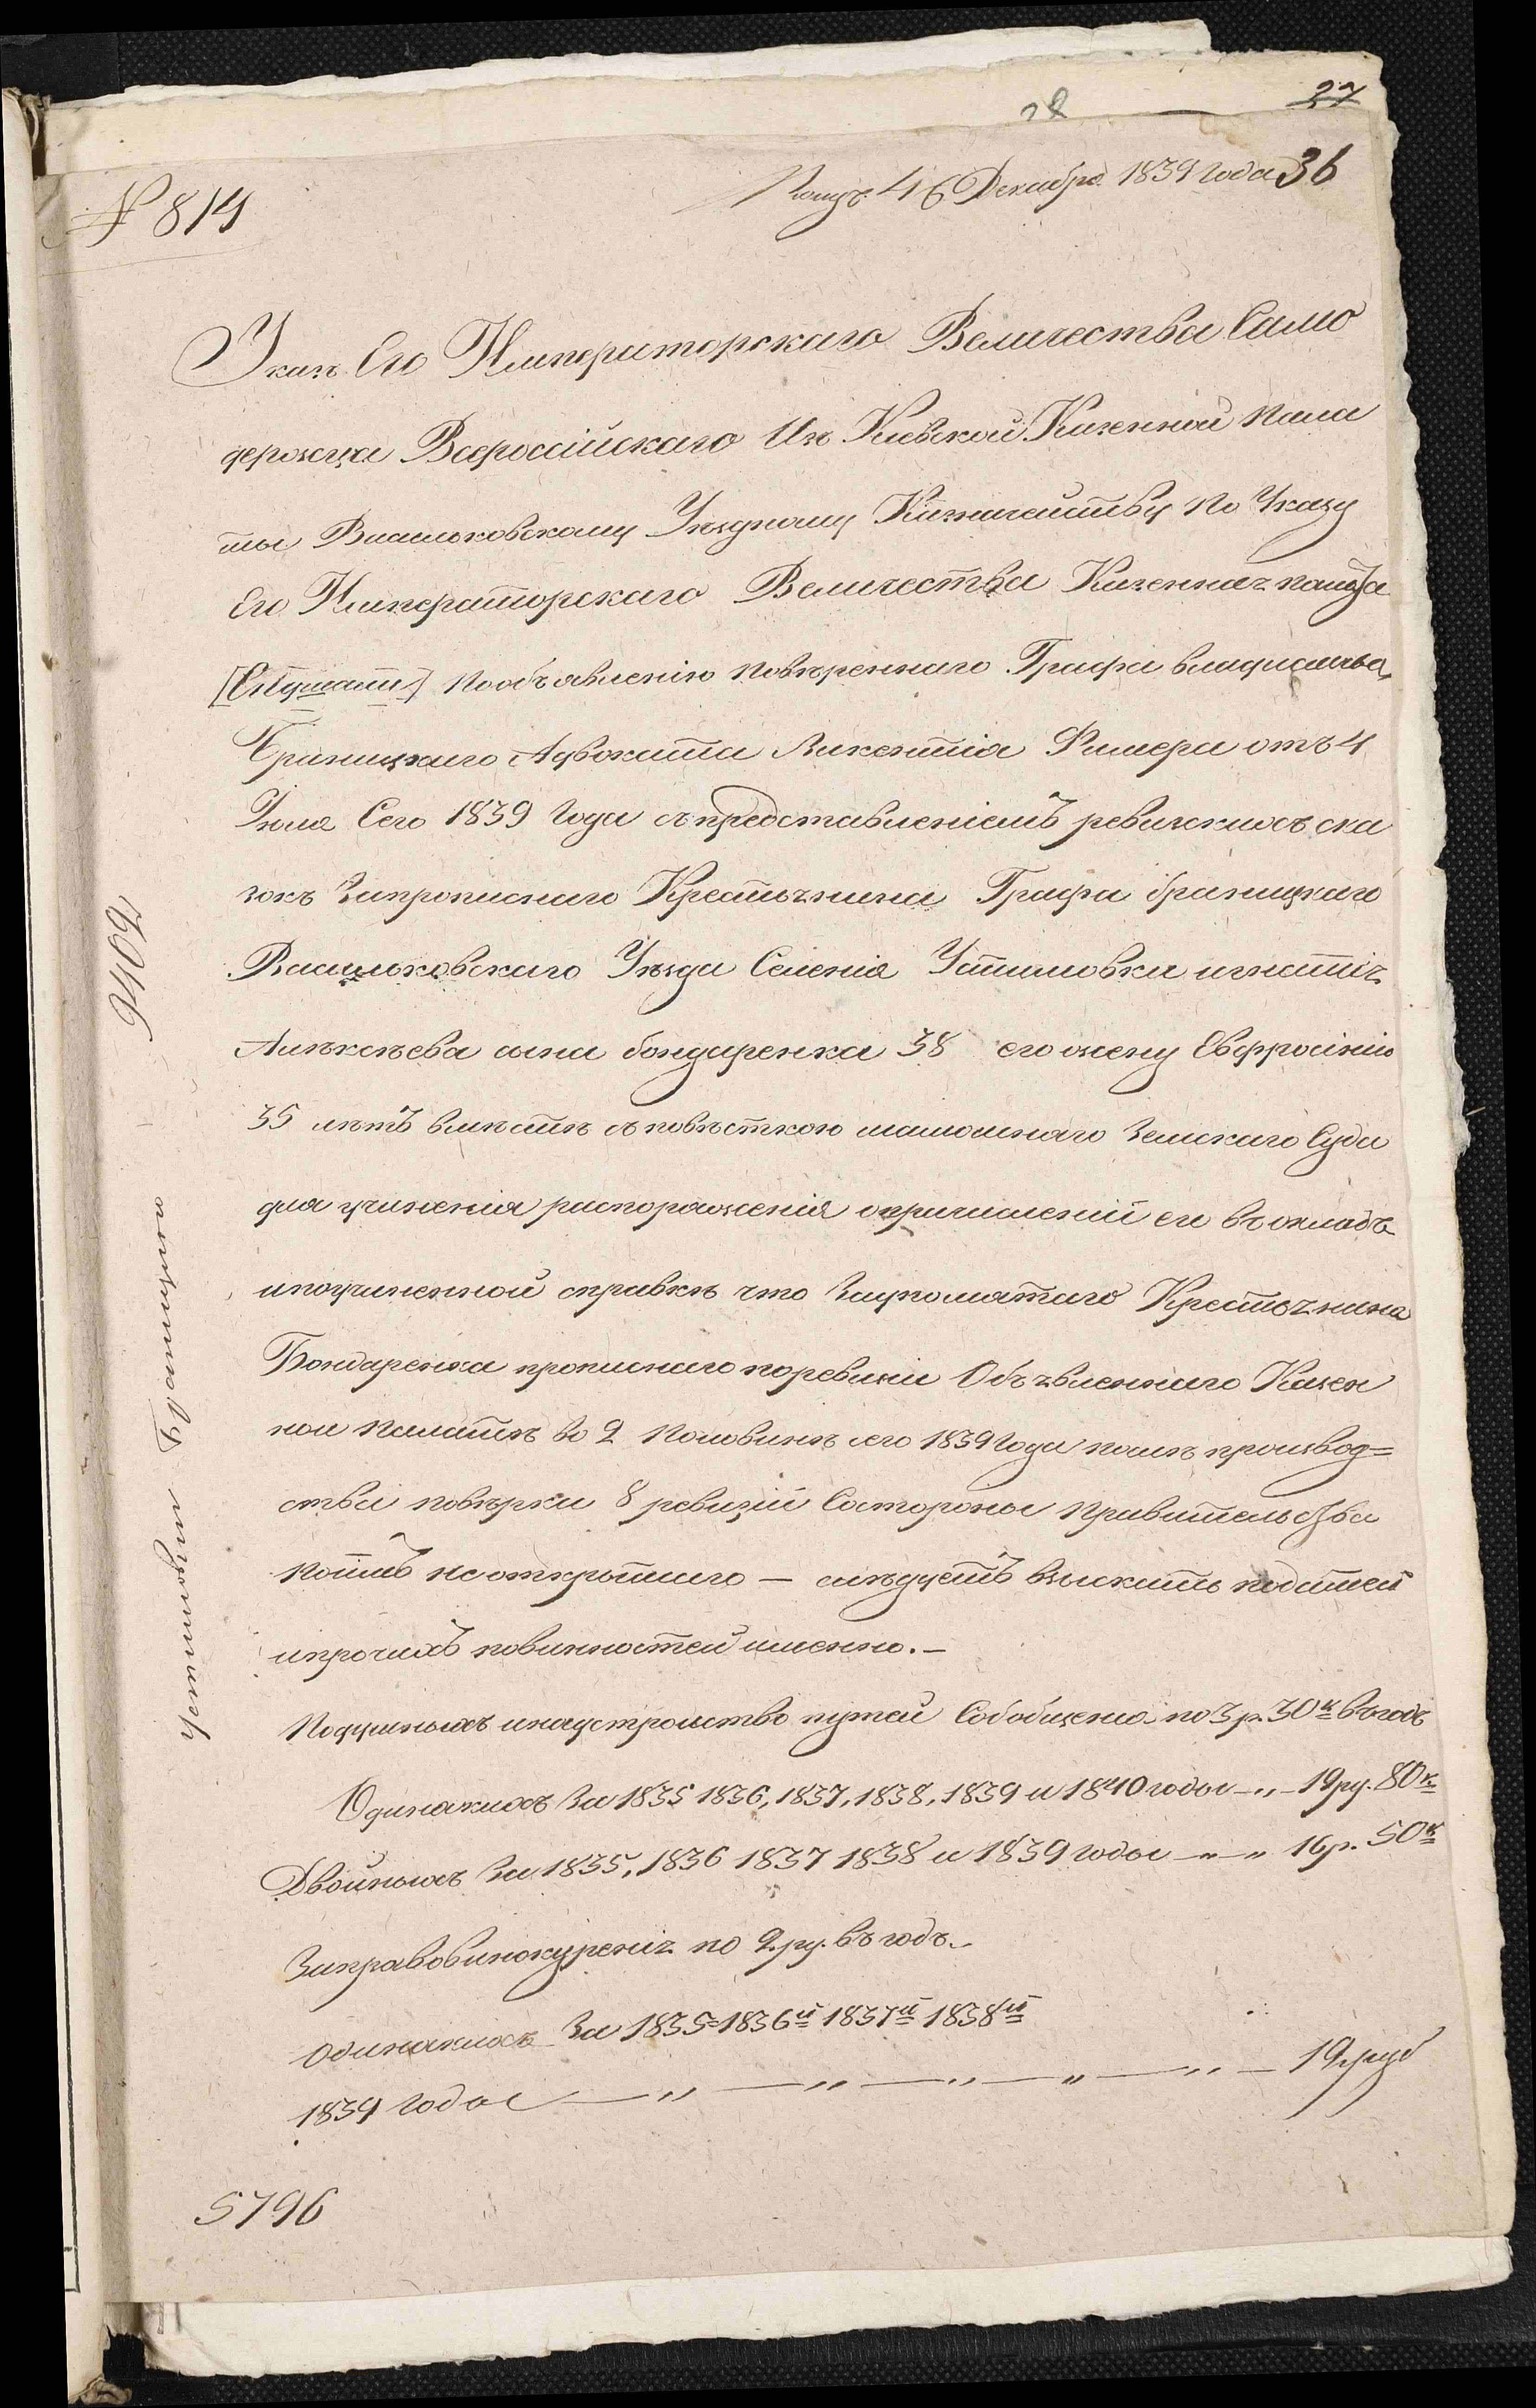 28
27
Декабря 1839 Года 36
№ 814
Указъ Его Императорскаго Величества Само
держца Всероссійскаго Изъ Кіевской Казенной Пала
ты Васильковскому Уездному Казначейству По Указу
Его Императорскаго Величества Казенная палата
[Слушали] По объявленію Повѣреннаго Графа владислава
Браницкаго Адвоката Викентія Фишера отъ 4
Іюля Сего 1839 Года съ представленіемъ ревизскихъ ска
зокъ Запрописнаго Крестьянина Графа браницкаго
Васильковскаго Уѣзда Селенія Устимовки игнатія
Алѣксѣева сына бондаренка 38 его жену Евфросинію
35 лѣтъ вмѣстѣ съ повѣсткою тамошняго Земскаго Суда
для учиненія распоряженія опричисленіи его въ окладъ
ипоучиненной справкѣ что Заупомятаго Крестьянина
Бондаренка прописнаго поревизіи Объявленнаго Казен
ной Палатѣ во 2 Половинѣ сего 1839 Года послѣ производ=
ства повѣрки 8 ревизіи Состороны Правительства
Потомъ неоткрытаго — слѣдуетъ взыскать податей
ипрочихъ повинностей именно.—
Подушныхъ инаустройство путей Сообщенія по 3 р. 30 к въ годъ
Одинакихъ За 1835 1836, 1837, 1838, 1839 и 1840 годы —„— 19 ру. 80 к
Двойныхъ За 1835, 1836 1837 1838 и 1839 годы —„—„ 16 р. 50 к
Заправовинокуренія по 2 ру. въ годъ.
Одинакихъ За 1835=1836й 1837й 1838й
1839 Годы —„—„—„—„—„— 19 руб
5796
9402
Устимовки Браницкаго